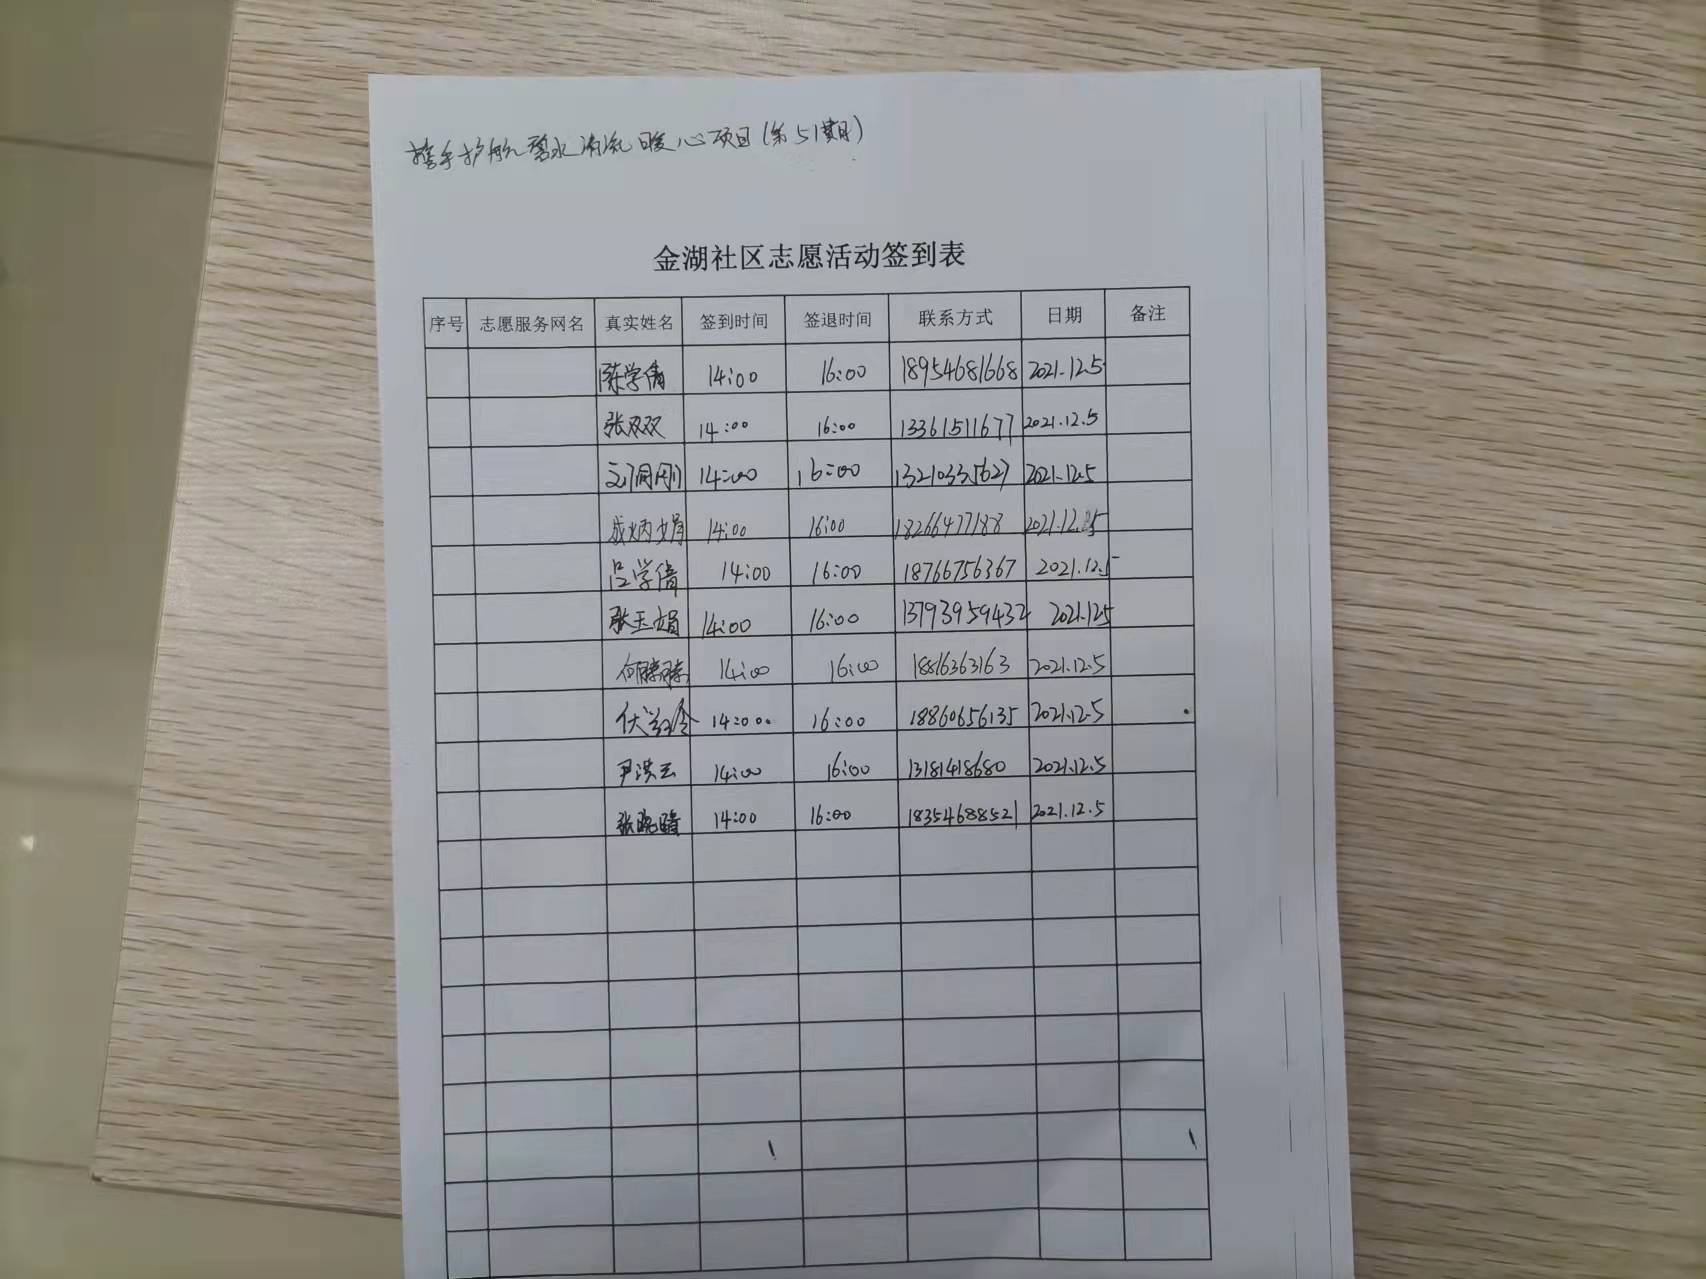 携手护航碧水清流暖心项目(第51期)
金湖社区志愿活动签到表
序号 志愿服务网名 真实姓名 签到时间 签退时间 联系方式 日期 备注
陈学倩 14:00 16:00 18954681668 2021.12.5
张双双 14:00 16:00 13361511677 2021.12.5
14:00 16:00 13210335627 2021.12.5
成炳娟 14:00 16:00 18266477188 2021.12.5
吕学倩 14:00 16:00 18766756367 2021.12.5
张玉娟 14:00 16:00 13793959432 2021.12.5
何 14:00 16:00 18816363163 2021.12.5
伏 14:00 16:00 18860656135 2021.12.5
尹洪云 14:00 16:00 13181418680 2021.12.5
张晓 14:00 16:00 18354688521 2021.12.5